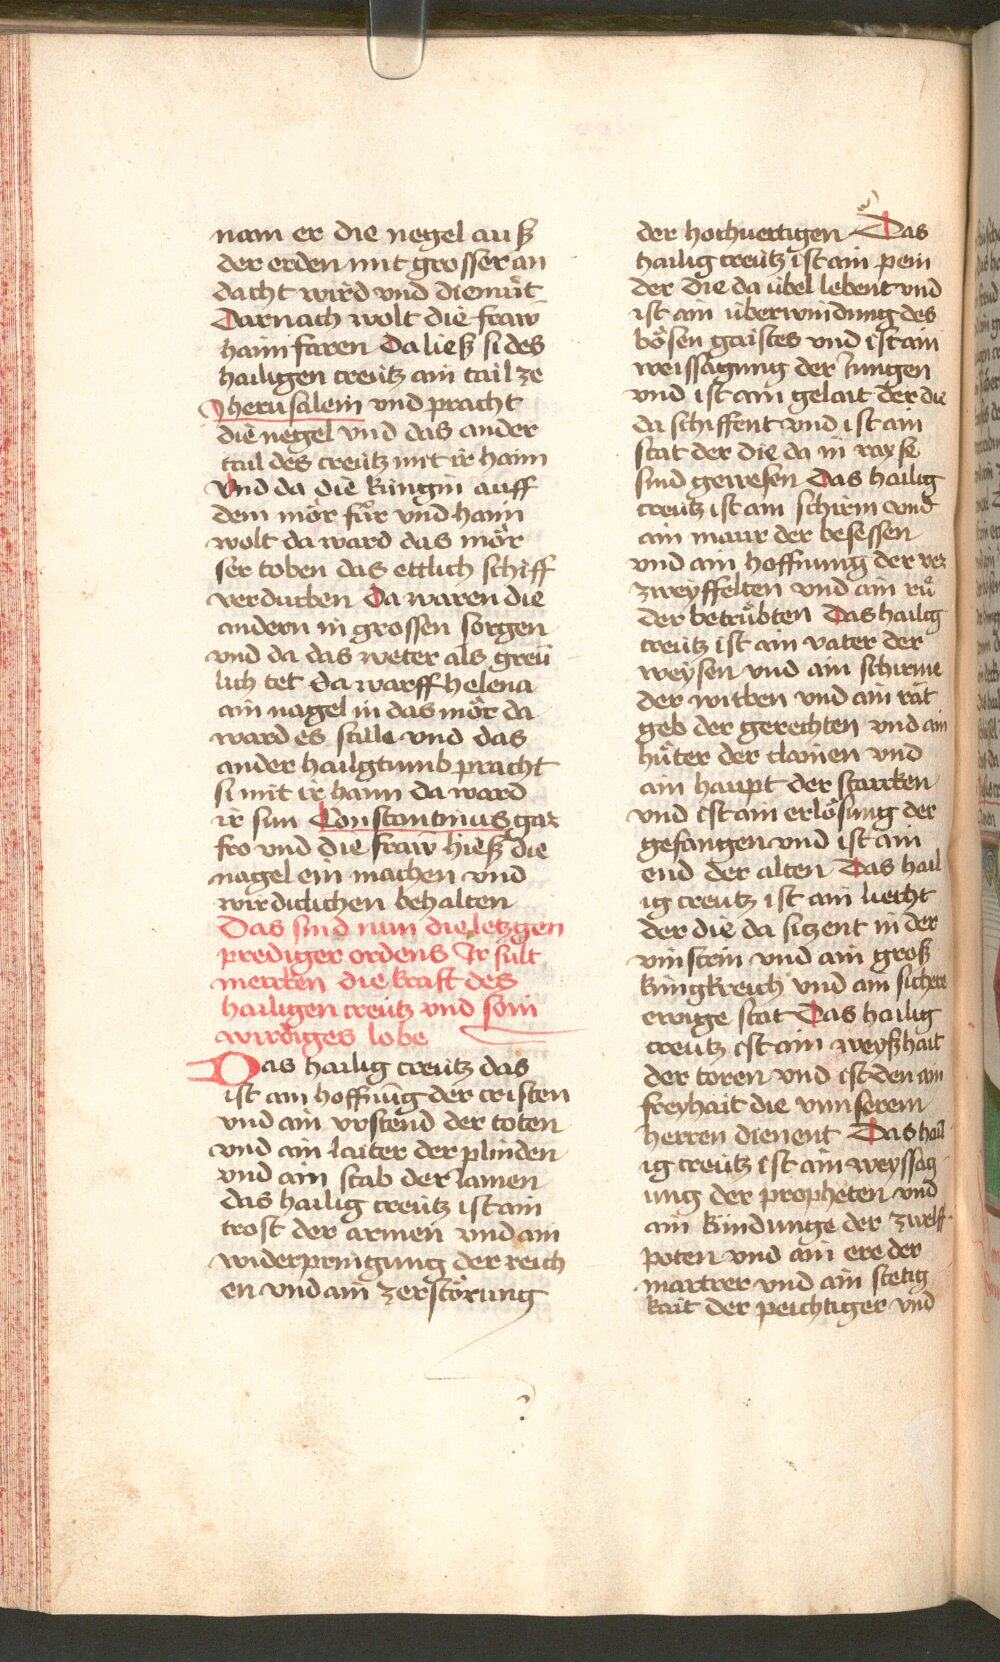 nam er die negel auß
der erden mit grosser an
dacht wird vnd diemuͤt
Darnach wolt die fraw
haim faren Da ließ si des
hailigen creütz ain tail ze
Jherusalem vnd pracht
die negel vnd das ander
tail des creütz mit ir haim
Vnd da die küngin auff
dem mör fuͦr vnd haim
wolt da ward das mör
ser toben das ettlich schiff
verdurben Da waren die
andern in grossen sorgen
vnd da das weter als greü
lich tet da warff helena
ain nagel in das mör da
ward es stille vnd das
ander hailgtumb pracht
si mit ir haim da ward
ir sun Constantinus gar
fro vnd die fraw hieß die
nagel ein machen vnd
wirdiclichen behalten
Das sind nun die letzgen
prediger ordens Ir sült
mercken die kraft des
hailigen creütz vnd sein
wirdiges lobe
Das hailig creütz das
ist ain hoffnūg der cristen
vnd ain vrstend der toten
vnd ain laiter der plinden
vnd ain stab der lamen
das hailig creütz ist ain
trost der armen vnd ain
widerpringung der reich
en vnd ain zerstörung
der hochuertigen Das
hailig creütz ist ain pein
der die da übel lebent vnd
ist ain überwindung des
bösen gaistes vnd ist ain
weissagung der Jungen
vnd ist ain gelait der die
da schiffent vnd ist ain
stat der die da in rayse
sind gewesen Das hailig
creütz ist ain schirm vnd
ain maur der besessen
vnd ain hoffnung der ver
zweyffelten vnd ain ruͦ
der betruͤbten Das hailig
creütz ist ain vater der
weysen vnd ain schirme
der witben vnd ain rät
geb der gerechten vnd ain
huͤter der clainen vnd
ain haupt der starcken
vnd ist ain erlösung der
gefangen vnd ist ain
end der alten Das hail
ig creütz ist ain liecht
der die da sitzent in der
vinstrin vnd ain groß
küngkreich vnd ain sichere
ewige stat Das hailig
creütz ist ain weyßhait
der toren vnd ist den ain
freyhait die vnnserem
herren dienent Das hail
ig creütz ist ain weyssag
ung der propheten vnd
ain kündunge der zwelff
poten vnd ain ere der
martrer vnd ain stetig
kait der peichtiger vnd